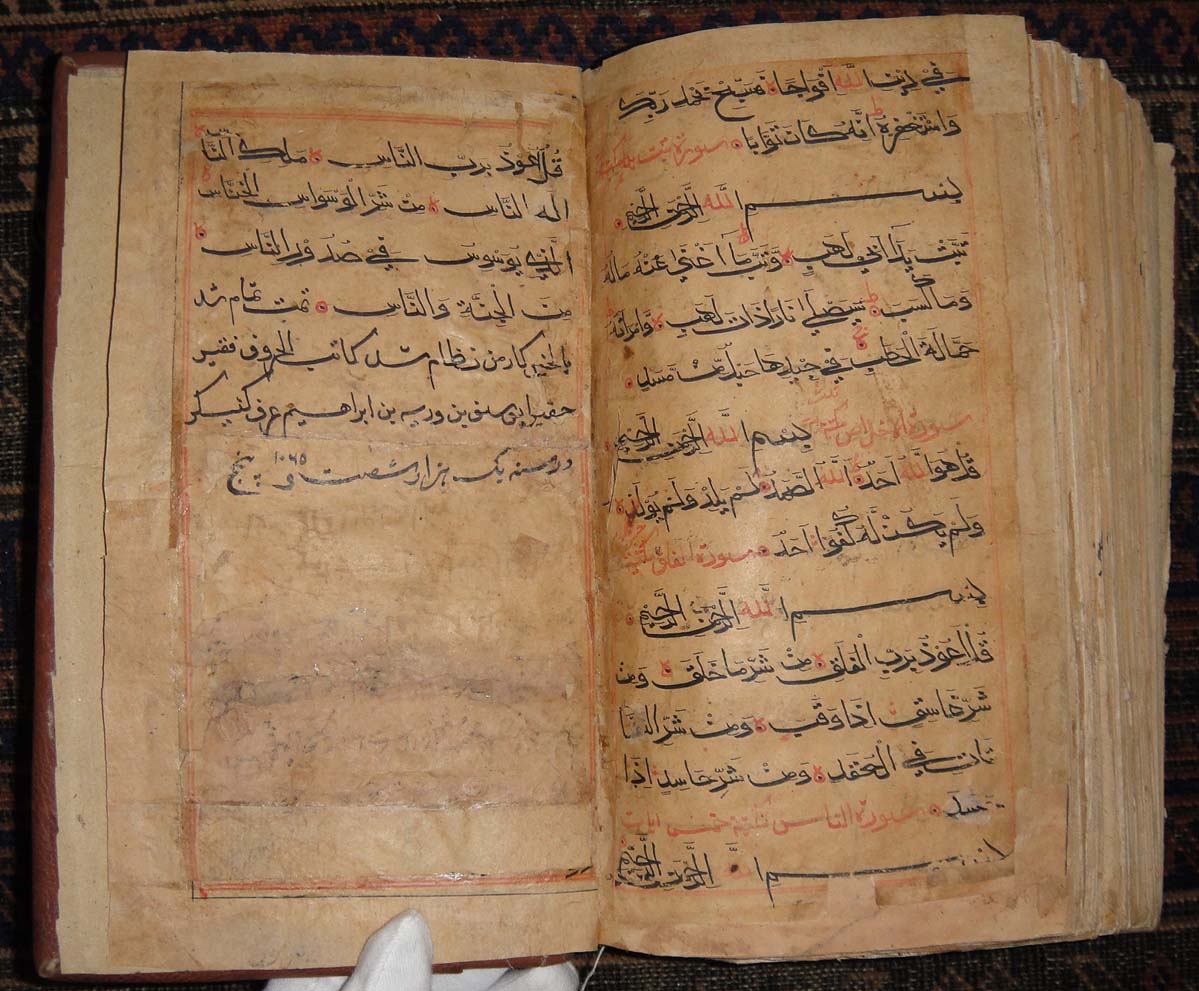 في دين الله أفواجا فسبح بحمد ربك
واستغفره إنه كان توابا سورة تبت
بسم الله الرحمن الرحيم
تبت يدا أبي لهب وتب ما أغنى عنه ماله
وما كسب سيصلى نارا ذات لهب وامرأته
حمالة الحطب في جيدها حبل من مسد
سورة الاخلاص بسم الله الرحمن الرحيم
قل هو الله أحد الله الصمد لم يلد ولم يولد
ولم يكن له كفوا أحد سورة الفلق
بسم الله الرحمن الرحيم
قل أعوذ برب الفلق من شر ما خلق ومن
شر غاسق إذا وقب ومن شر النفا
ثات في العقد ومن شر حاسد إذا
حسد سورة الناس خمس ايات
بسم الله الرحمن الرحيم
قل أعوذ برب الناس ملك الناس
اله الناس من شر الوسواس الخناس
الذي يوسوس في صدور الناس
من الجنة والناس تمت تمام شد
كار من نظام شد كاتب الحروف فقير
حقير بن بن ابراهيم عرف
در سنه يك هزار و شصت و پنج ١٠٦٥